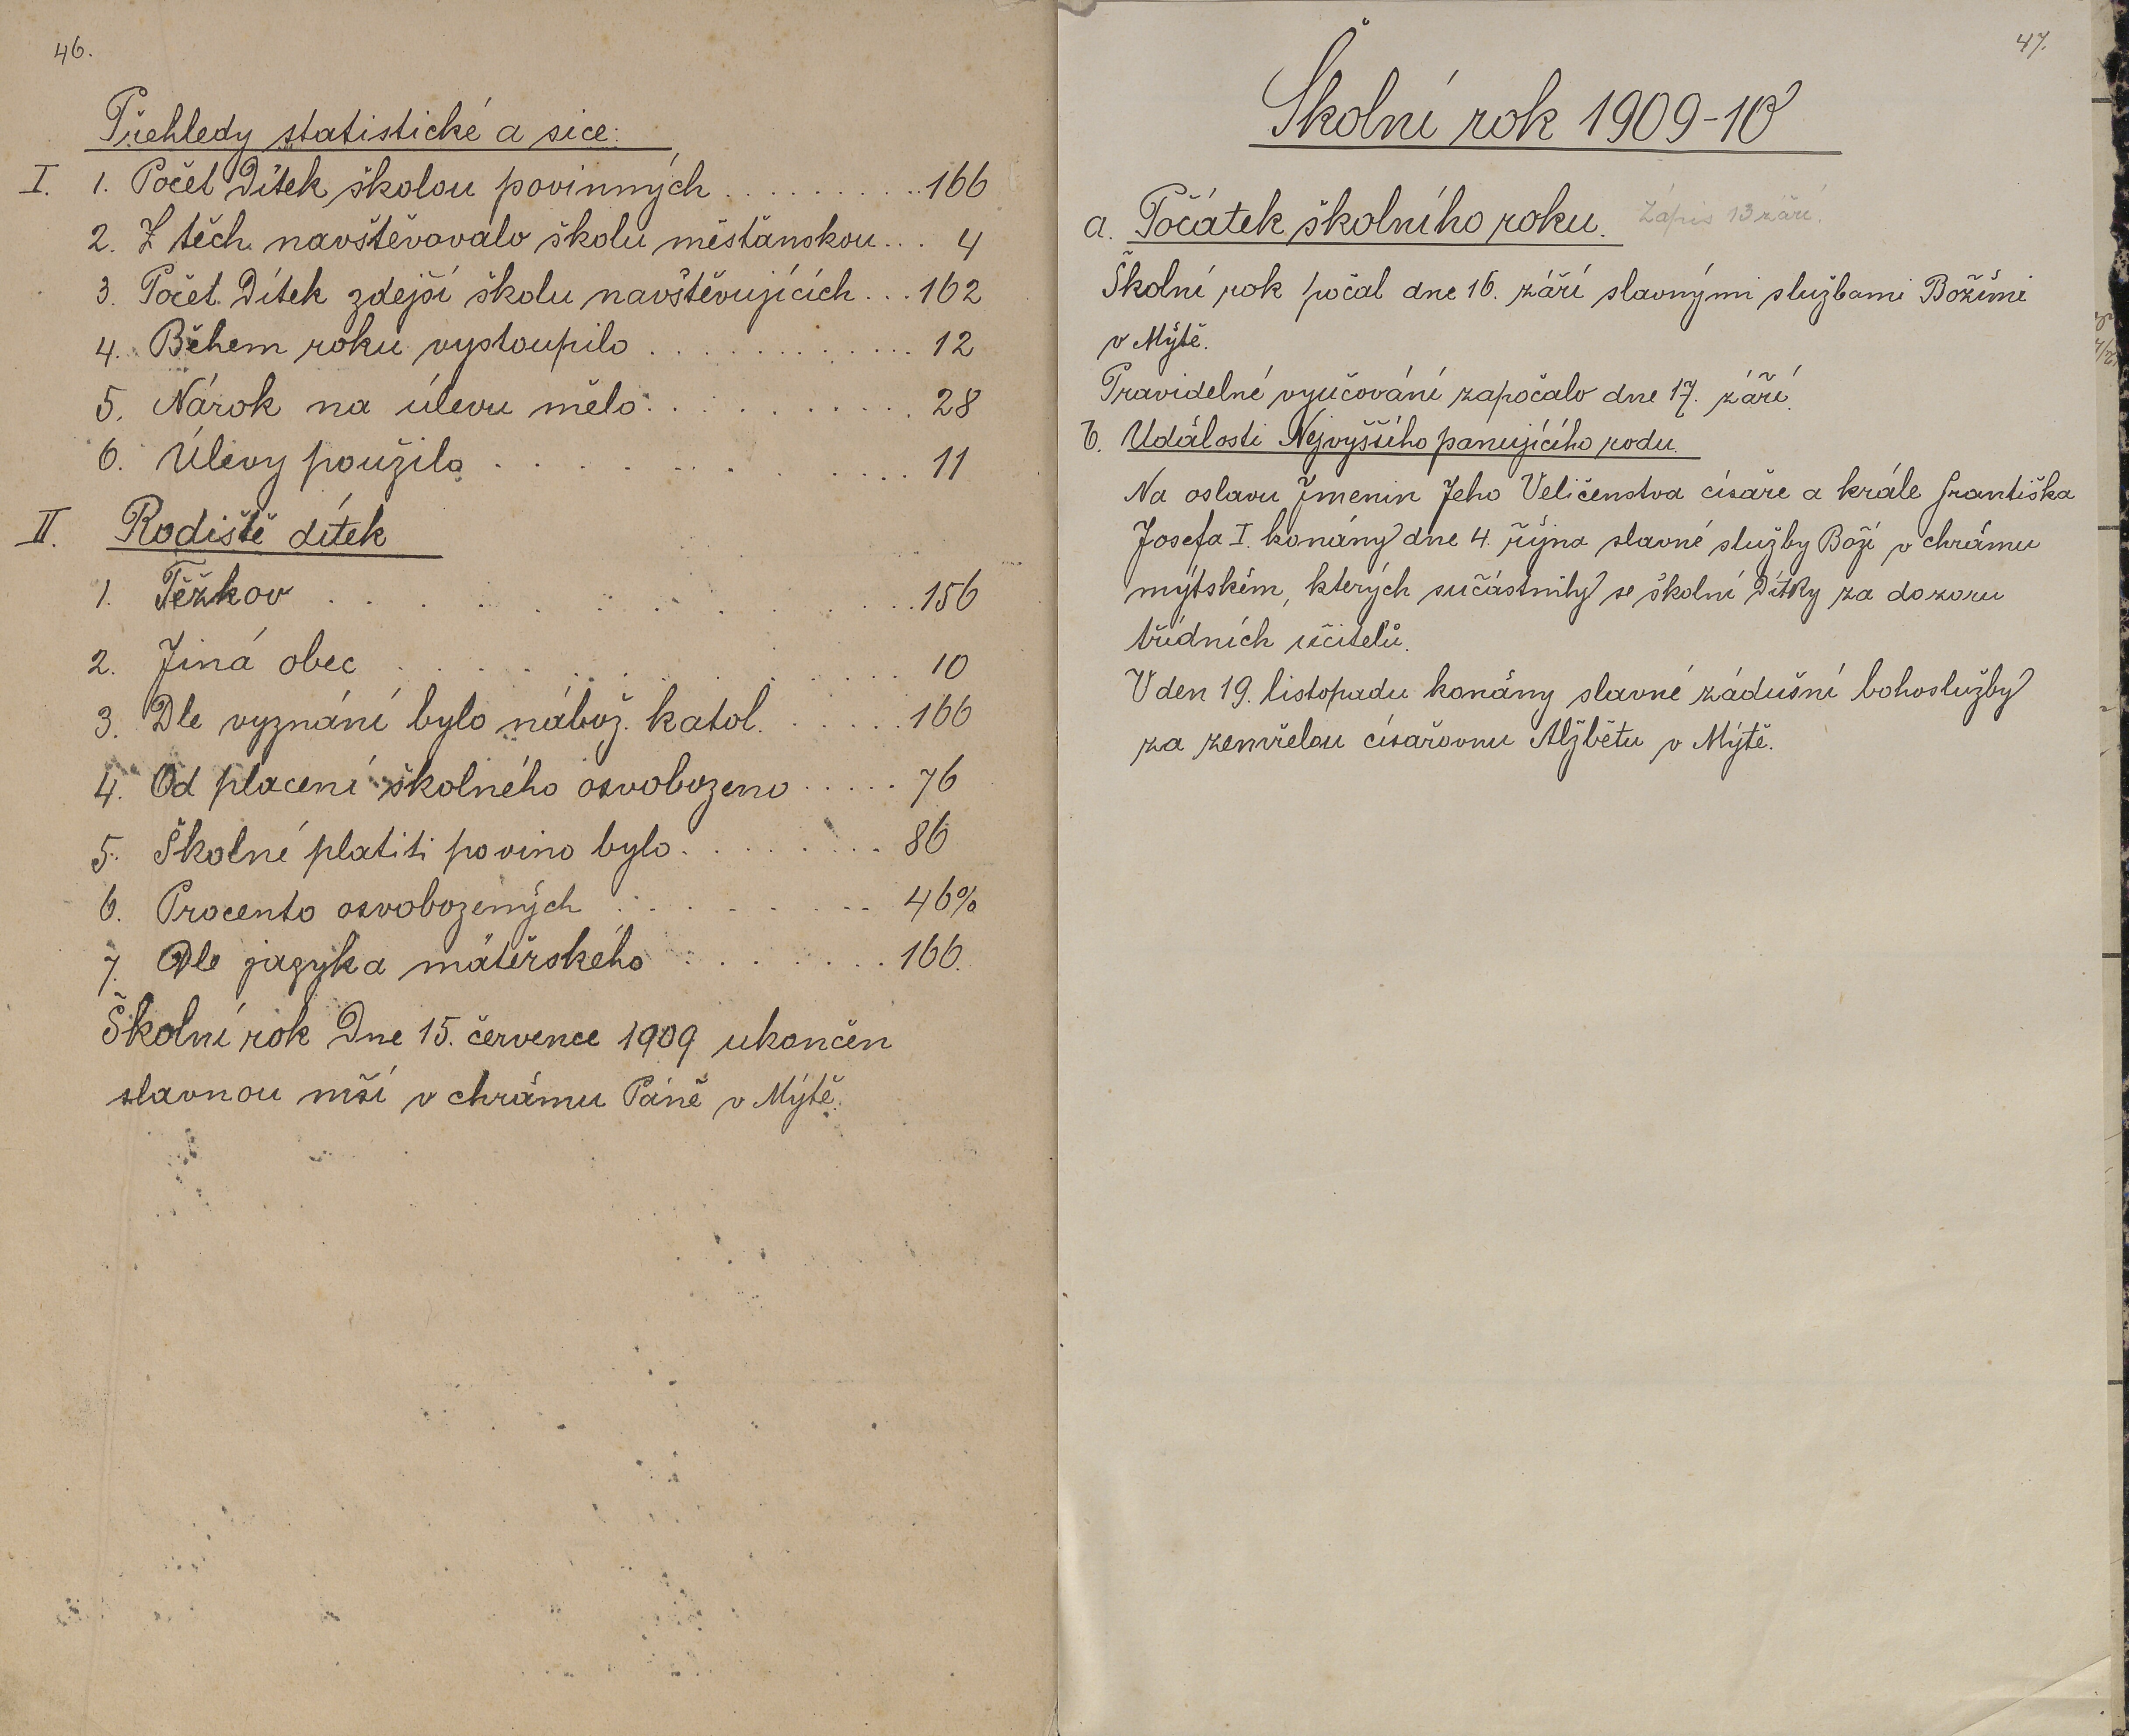 46.
Přehledy statistické a sice:
I. 1. Počet Dítek školou povinných . . . . . . . . . . 166
2. Z těch navštěvovalo školu měšťanskou . . . 4
3. Počet Dítek zdejší školu navštěvujících . . . 162
4. Během roku vystoupilo . . . . . . . . . . . . . 12
5. Nárok na úlevu mělo . . . . . . . . . . . 28
6. Úlevy použilo . . . . . . . . . . . 11
II. Rodiště dítek
1. Těžkov . . . . . . . . . . . . . 156
2. Jiná obec . . . . . . . . . . . . 10
3. Dle vyznání bylo nábož. katol. . . . . . . 166
4. Od placení školného osvobozeno . . . . . 76
5. Školné platiti povino bylo . . . . . . . . . 86
6. Procento osvobozených . . . . . . . . . 46%
7. Dle jazyka mátěrského . . . . . . . . 166.
Školní rok Dne 15. července 1909 ukončen
slavnou mší v chrámu Páně v Mýtě.
47.
Školní rok 1909-10
a. Počátek školního roku. Zápis 13 září.
Školní rok počal dne 16. září slavnými službami Božími
v Mýtě.
Pravidelné vyučování započalo dne 17. září.
b. Události Nejvyššího panujícího rodu.
Na oslavu Jmenin Jeho Veličenstva císaře a krále Františka
Josefa I. konány dne 4. října slavné služby Boží v chrámu
mýtském, kterých súčástnily se školní Dítky za dozoru
třídních učitelů.
V den 19. listopadu konány slavné zádušní bohoslužby
za zemřelou císařovnu Alžbětu v Mýtě.